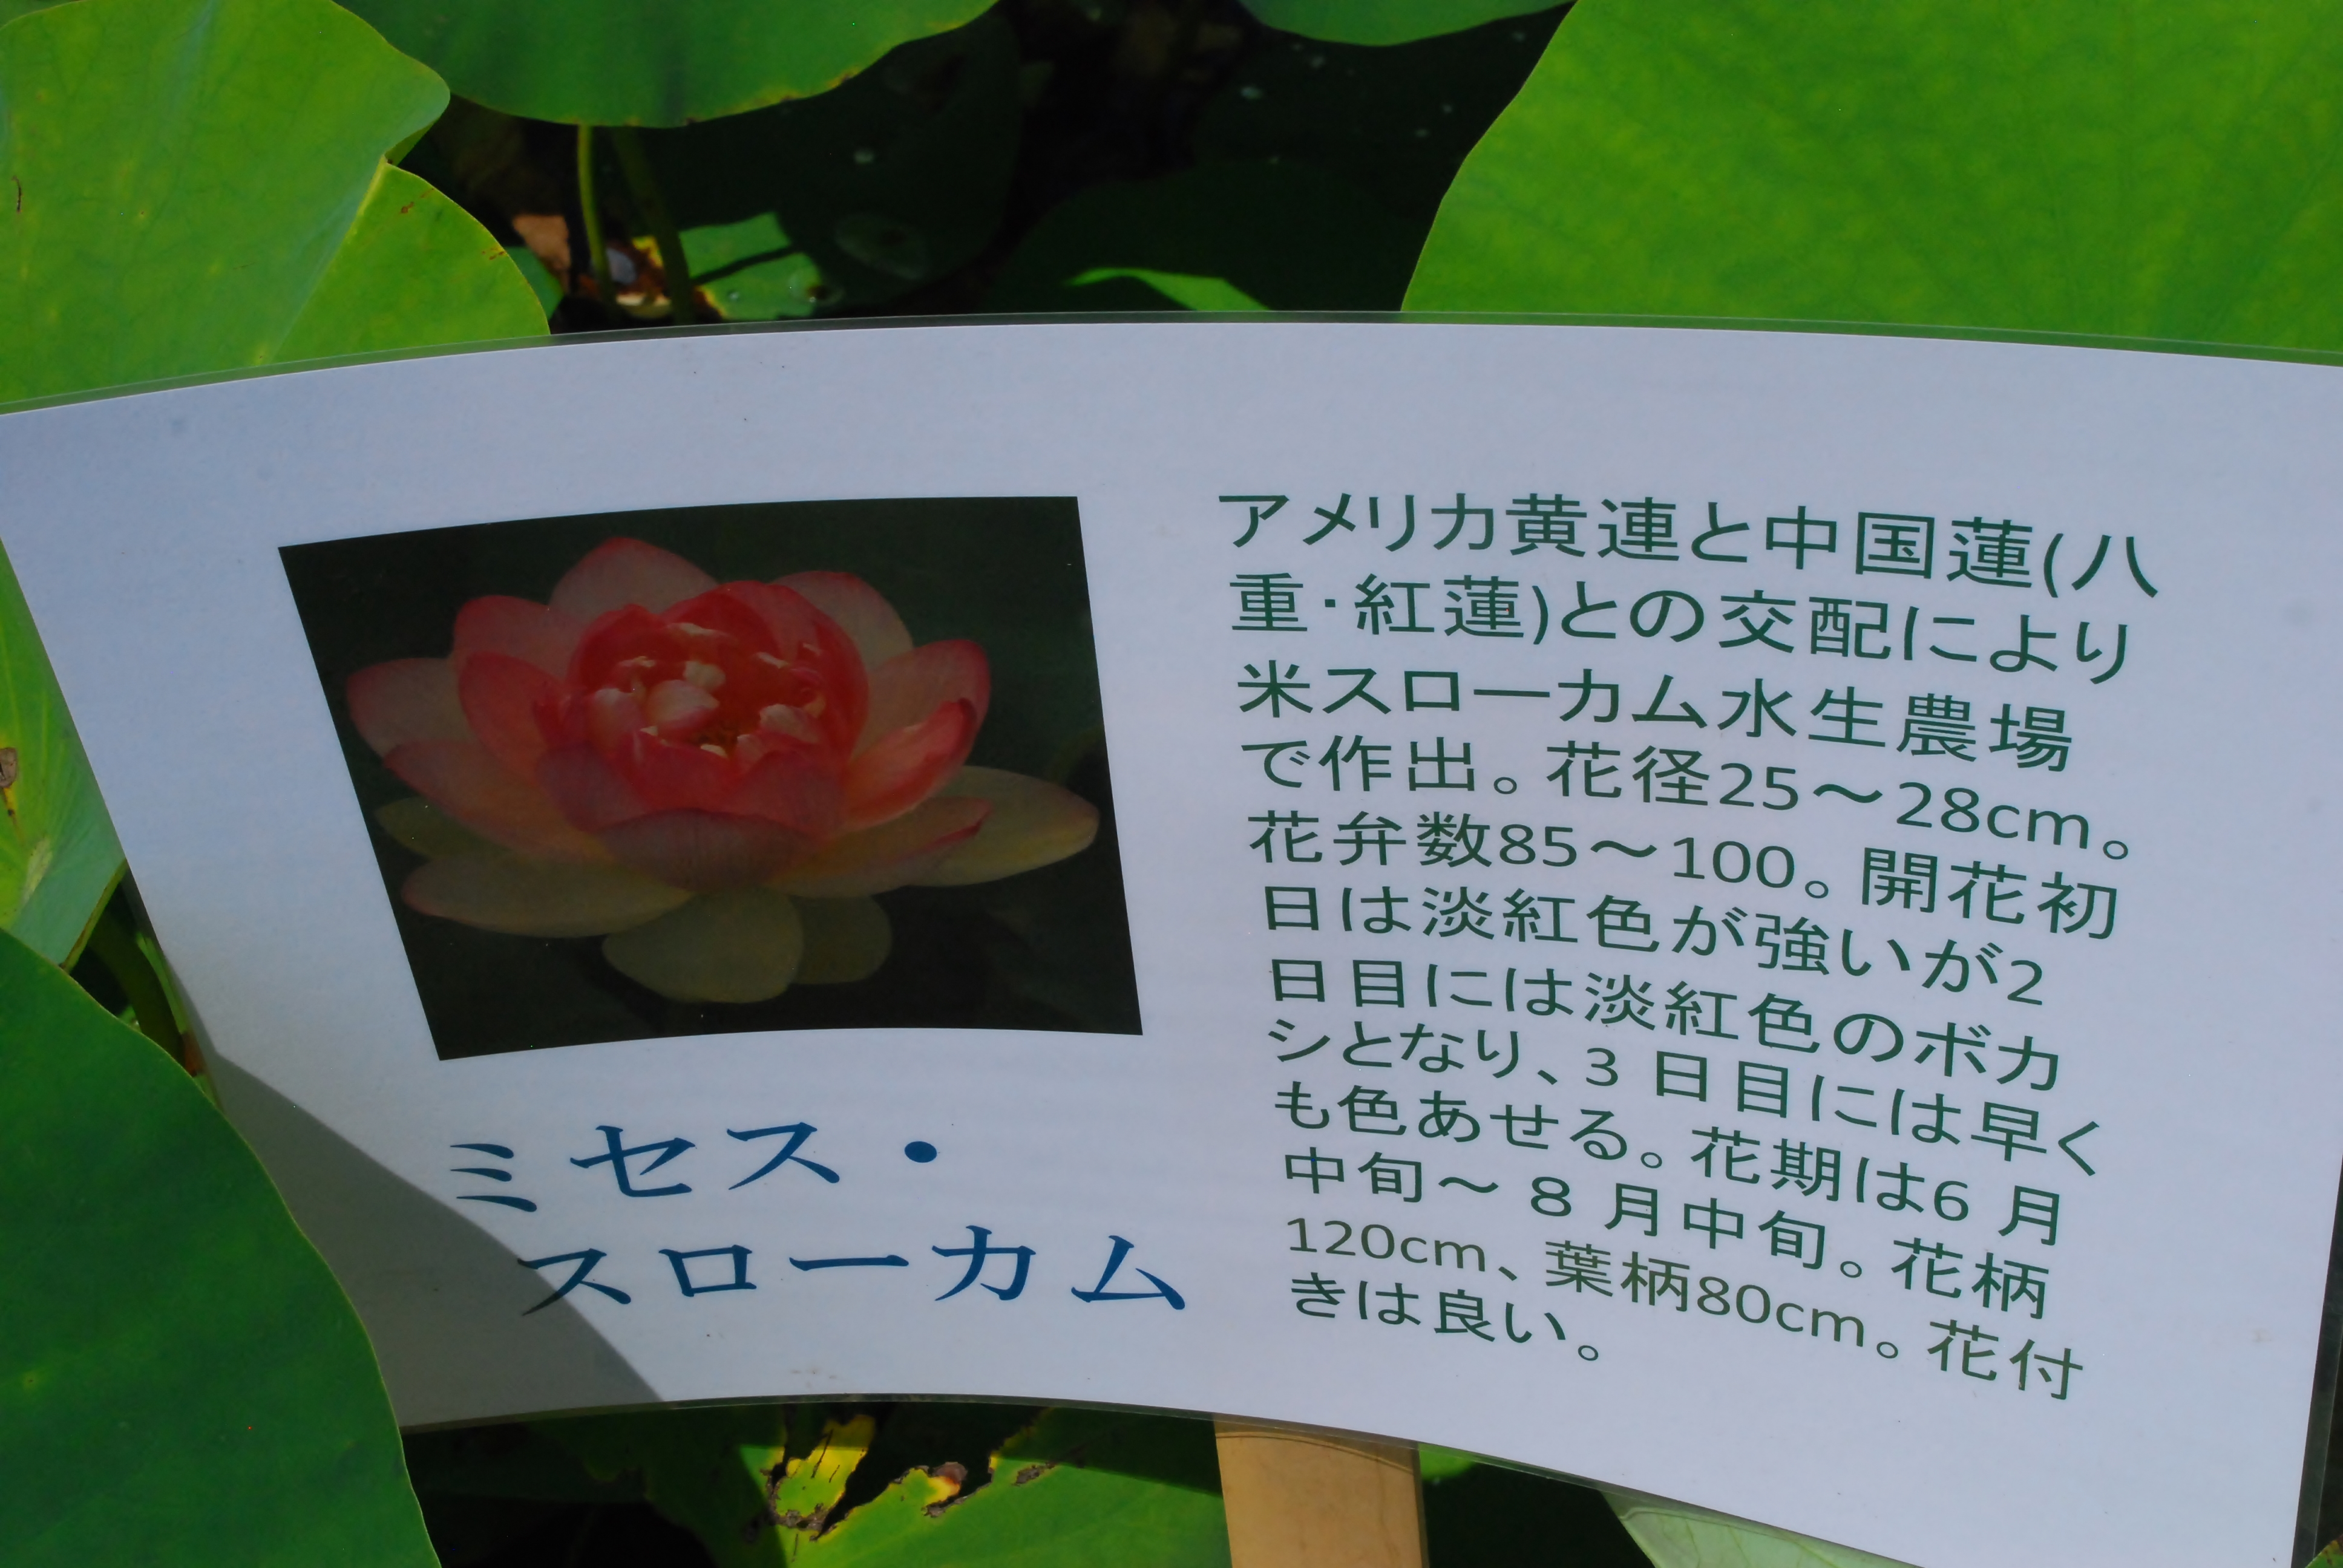 アメリカ黄連と中国蓮(八
重・紅蓮)との交配により
米スローカム水生農場
で作出。花径25～28cm。
花弁数85～100。開花初
日は淡紅色が強いが2
日目には淡紅色のボカ
シとなり、3 日目には早く
も色あせる。花期は6 月
中旬～ 8 月中旬。花柄
120cm、葉柄80cm。花付
きは良い。
ミセス・
スローカム